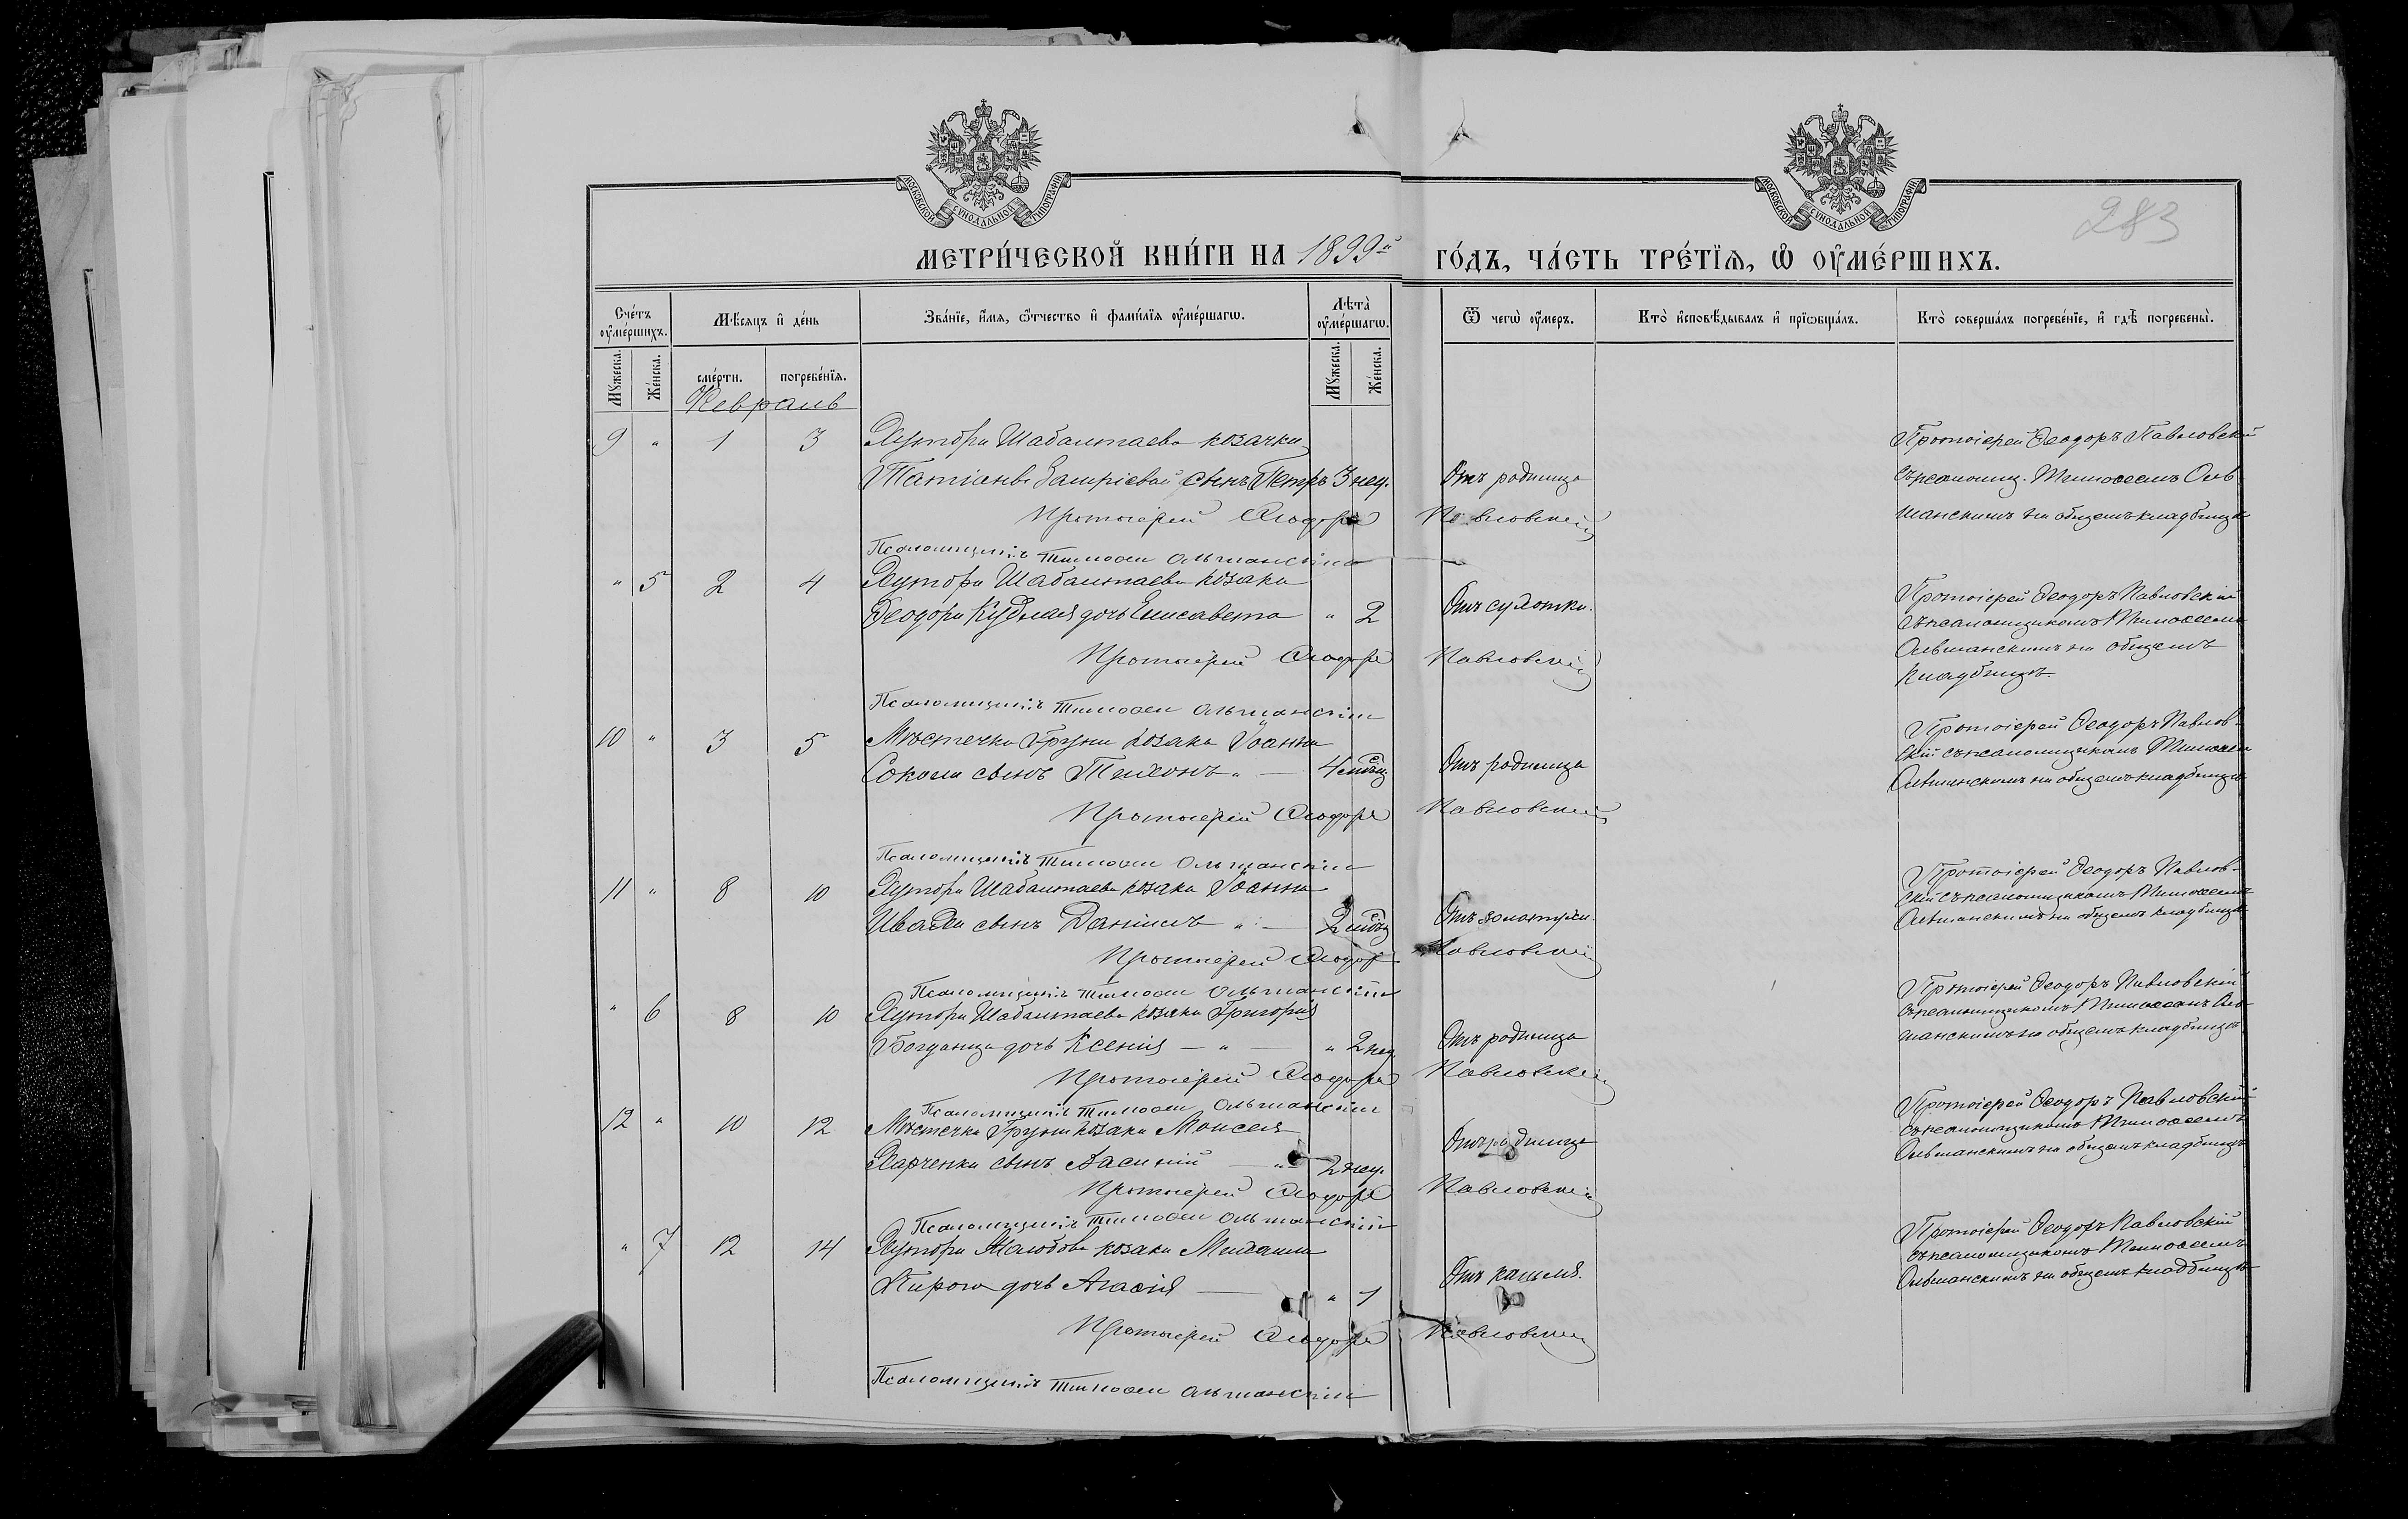 МОСКОВСКОЙ СѴНОДАЛЬНОЙ ТИПОГРАФІИ
МОСКОВСКОЙ СѴНОДАЛЬНОЙ ТИПОГРАФІИ
283
МЕТРИ́ЧЕСКОЙ КНИ́ГИ НА 1899й ГО́ДЪ, ЧА́СТЬ ТРЕ́ТЇѦ, Ѡ҆ ОУ҆МЕ́РШИХЪ.
Сче́тъ оу҆ме́ршихъ.
Мѣ́сяцъ и҆ де́нь
Зва́нїе, и҆́мя, ѻ҆́тчество и҆ фами́лїя оу҆ме́ршагѡ.
Лѣта̀ оу҆ме́ршагѡ.
Ѿ чегѡ̀ оу҆́меръ.
Кто̀ и҆сповѣ́дывалъ и҆ прїѡбща́лъ.
Кто̀ соверша́лъ погребе́нїе, и҆ гдѣ̀ погребены̀.
Мꙋ́жеска.
Же́нска.
сме́рти.
погребе́нїя.
Мꙋ́жеска.
Же́нска.
Февраль
9 " 1 3 Хутора Шабалтаева козачки
Татіаны сынъ Петръ 3 нед. Отъ родимца
Протоіерей Ѳеодоръ Павловскій
съ псаломщ. Тимоѳеемъ Оль
шанскимъ на общемъ кладбищѣ
Протоіерей Ѳеодоръ Павловскій
Псаломщикъ Тимоѳей Ольшанскій
" 5 2 4 Хутора Шабалтаева козака
Ѳеодора дочь Елисавета " 2 Отъ сухотки.
Протоіерей Ѳеодоръ Павловскій
съ псаломщикомъ Тимоѳеемъ
Ольшанскимъ на общемъ
кладбищѣ.
Протоіерей Ѳеодоръ Павловскій
Псаломщикъ Тимоѳей Ольшанскій
10 " 3 5 Мѣстечка Груни козака Іоанна
Сокола сынъ Тихонъ " — 4 мѣсц Отъ родимца
Протоіерей Ѳеодоръ Павлов-
скій съ псаломщикомъ Тимоѳеемъ
Ольшанскимъ на общемъ кладбищѣ
Протоіерей Ѳеодоръ Павловскій
Псаломщикъ Тимоѳей Ольшанскій
11 " 8 10 Хутора Шабалтаева козака Іоанна
сынъ Даніилъ " — 2 мѣсц Отъ золотухи.
Протоіерей Ѳеодоръ Павлов-
скій съ псаломщикомъ Тимоѳеемъ
Ольшанскимъ на общемъ кладбищѣ
Протоіерей Ѳеодоръ Павловскій
Псаломщикъ Тимоѳей Ольшанскій
" 6 8 10 Хутора Шабалтаева козака Григорія
Богданца дочь Ксенія — " — " 2 нед. Отъ родимца
Протоіерей Ѳеодоръ Павловскій
съ псаломщикомъ Тимоѳеемъ Оль-
шанскимъ на общемъ кладбищѣ
Протоіерей Ѳеодоръ Павловскій
Псаломщикъ Тимоѳей Ольшанскій
12 " 10 12 Мѣстечка Груни козака Моисея
Харченка сынъ Василій — " 2 нед. Отъ родимца
Протоіерей Ѳеодоръ Павловскій
съ псаломщикомъ Тимоѳеемъ
Ольшанскимъ на общемъ кладбищѣ
Протоіерей Ѳеодоръ Павловскій
Псаломщикъ Тимоѳей Ольшанскій
" 7 12 14 Хутора козака Михаила
дочь Агафія — " 1 Отъ кашля.
Протоіерей Ѳеодоръ Павловскій
съ псаломщикомъ Тимоѳеемъ
Ольшанскимъ на общемъ кладбищѣ
Протоіерей Ѳеодоръ Павловскій
Псаломщикъ Тимоѳей Ольшанскій